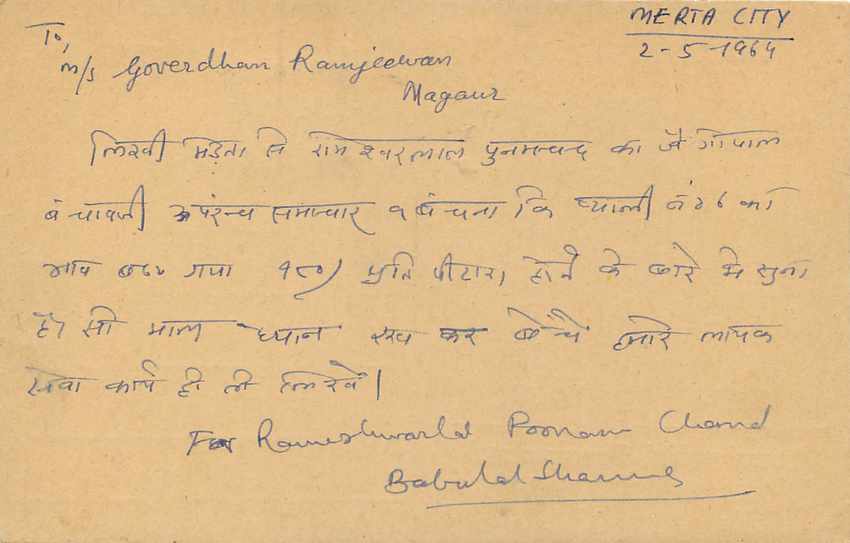 MERTA CITY
2-5-1964
To,
M/s Goverdhan Ramjeewan
Nagaur
लिखी मेड़ता से रामेश्वरलाल पुनमचन्द का जै गोपाल
बंचावजी अपरंच समाचार १ बंचना कि प्याली नं० ६ का
भाव गया १८०) प्रति पीटारा होने के बारे मे सुना
है। सो माल ध्यान रख कर बेचें हमारे लायक
सेवा कार्य हो तो लिखें।
For Rameshwarlal Poonam Chand
Babulal Sharma